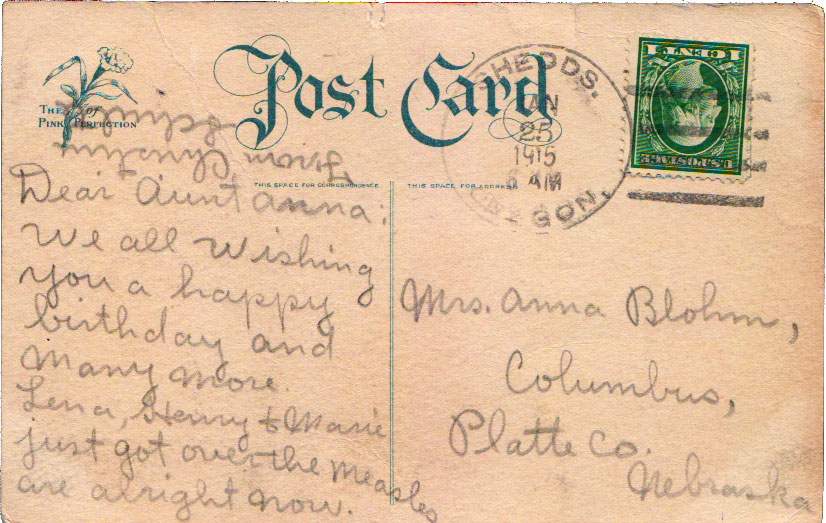 Post Card
The Pink of Perfection
THIS SPACE FOR CORRESPONDENCE
THIS SPACE FOR ADDRESS
SHEDDS.
25
1915
AM
GON.
1 CENT 1
U.S. POSTAGE
Dear Aunt Anna:
We all wishing
you a happy
birthday and
many more.
Lena, Henry & Marie
just got over the measles
are alright now.
From
Mrs. Anna Blohm,
Columbus,
Platte Co.
Nebraska